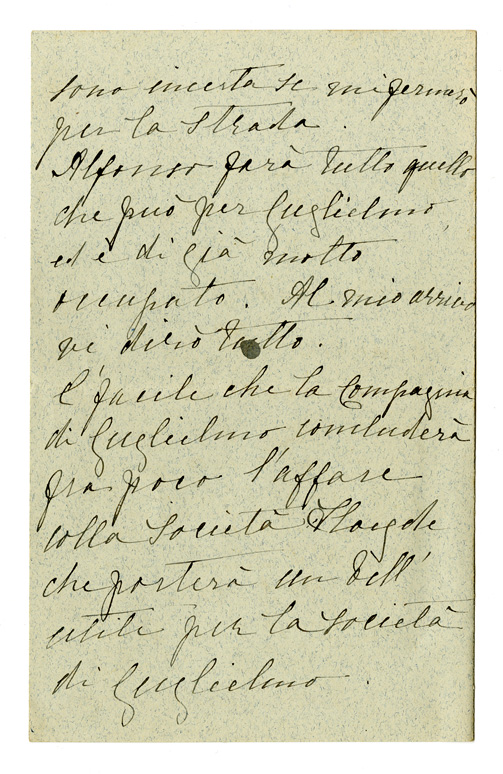 sono incerta se mi fermerò
per la strada.
Alfonso farà tutto quello
che può per Guglielmo
ed è di già molto
occupato. Al mio arrivo
vi dirò tutto.
E' facile che la Compagnia
di Guglielmo concluderà
fra poco l'affare
colla Società
che porterà un bell'
utile per la Società
di Guglielmo.